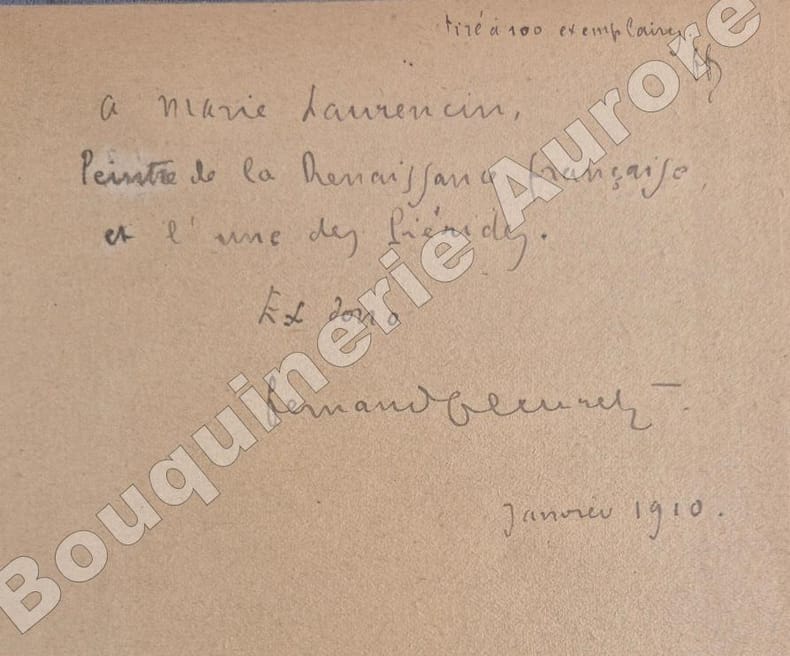 tiré à 100 exemplaires
A Marie Laurencin,
Peintre de la Renaissance française,
et l'une des Piérides.
Ex dono
Fernand Fleuret
Janvier 1910.
Bouquinerie Aurore